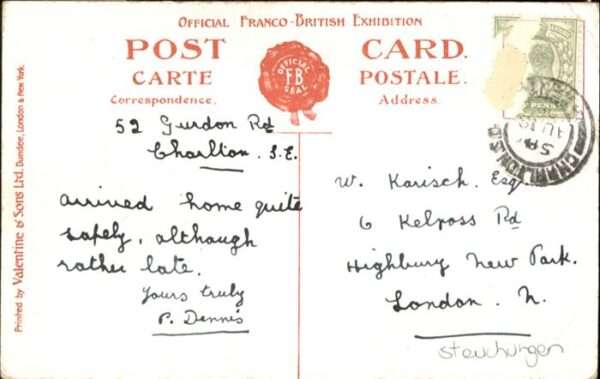 OFFICIAL FRANCO-BRITISH EXHIBITION
POST CARD.
CARTE POSTALE.
OFFICIAL
F.B
SEAL
Correspondence. Address.
Printed by Valentine & Sons Ltd. Dundee, London & New York.
52 Gurdon Rd
Charlton. S.E.
arrived home quite
safely, although
rather late.
Yours truly
P. Dennis
W. Karisch. Esq.
6 Kelross Rd
Highbury New Park.
London. N.
PENNY
CHARLTON S.O
5 PM
AU 19